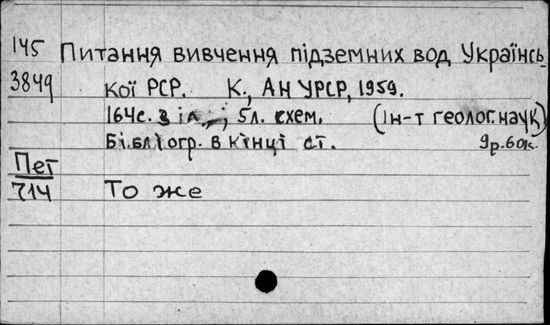 145 Питання вивчення підземних вод Українсь-
3849 кої РСР. К., АН УРСР, 1959.
164с. з іл., 5л. схем. (Ін-т геолог. наук)
Бібліогр. в кінці ст. 9р.60к.
Пет
714 То же